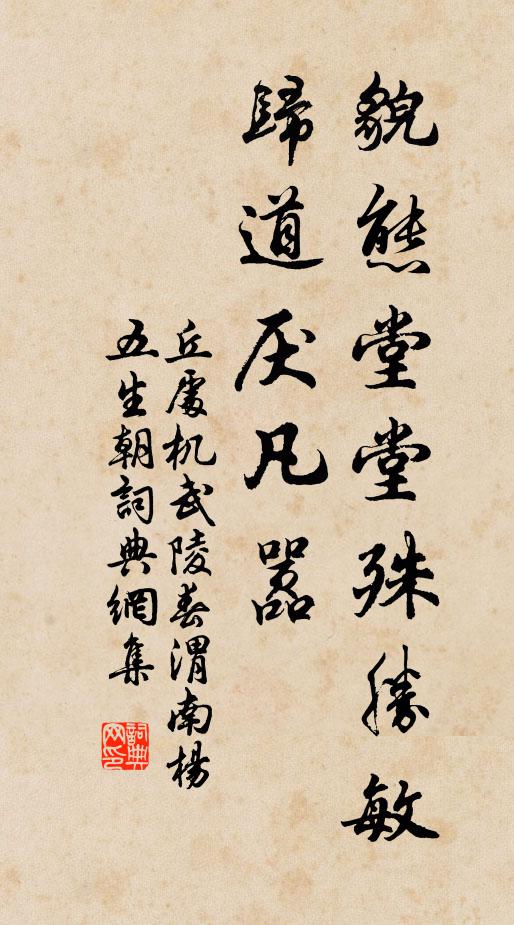 貌熊堂堂殊勝敏
歸道厌凡嚣
丘處机武陵春渭南楊
五生朝詞典網集
詞典网印